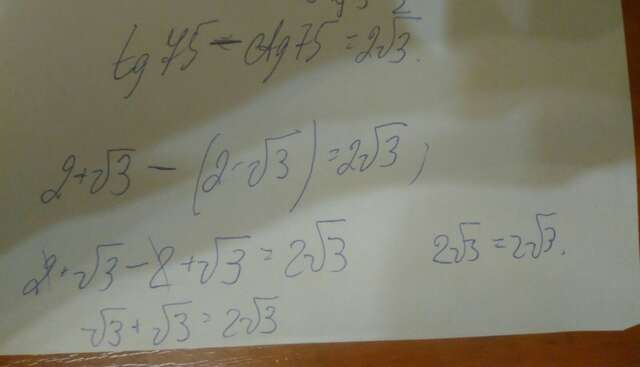 tg 75 - ctg 75 = 2√3.
2+√3 - (2-√3) = 2√3;
2+√3 - 2 + √3 = 2√3 2√3 = 2√3.
√3 + √3 = 2√3